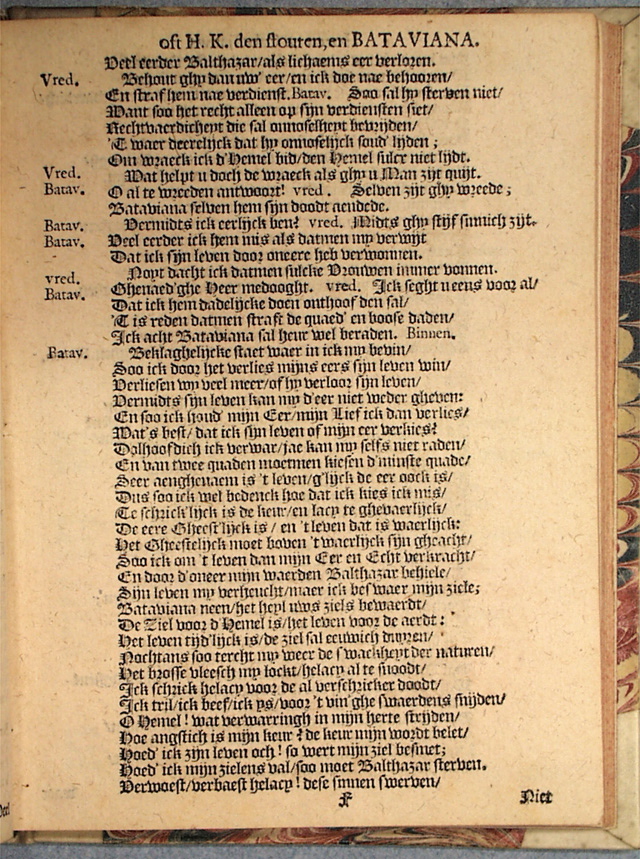 oft H. K. den stouten, en BATAVIANA.
Veel eerder Balthazar/als lichaems eer verloren.
Vred. Behout ghy dan uw' eer/en ick doe nae behooren/
En straf hem nae verdienst. Batav. Soo sal hy sterven niet/
Want soo het recht alleen op sijn verdiensten siet/
Rechtvaerdicheyt die sal onnoselheyt bevrijden/
'T waer deerelijck dat hy onnoselijck soud' lijden;
Om wraeck ick d'Hemel bid/den Hemel sulcx niet lijdt.
Vred. Wat helpt u doch de wraeck als ghy u Man zijt quijt.
Batav. O al te wreeden antwoort! vred. Selven zijt ghy wreede;
Bataviana selven hem sijn doodt aendede.
Batav. Vermidts ick eerlijck ben? vred. Midts ghy stijf sinnich zijt.
Batav. Veel eerder ick hem mis als datmen my verwijt
Dat ick sijn leven door oneere heb verwonnen.
vred. Noyt dacht ick datmen sulcke Vrouwen immer vonnen.
Batav. Ghenaed'ghe Heer medooght. vred. Ick seght u eens voor al/
Dat ick hem dadelijcke doen onthoof den sal/
'T is reden datmen straft de quaed' en boose daden/
Ick acht Bataviana sal heur wel beraden. Binnen.
Batav. Beklaghelijcke staet waer in ick my bevin/
Soo ick door het verlies mijns eers sijn leven win/
Verliesen wy veel meer/of hy verloor sijn leven/
Vermidts sijn leven kan my d'eer niet weder gheven:
En soo ick houd' mijn Eer/mijn Lief ick dan verlies/
Wat's best/dat ick sijn leven of mijn eer verkies?
Dolhoofdich ick verwar/jae kan my selfs niet raden/
En van twee quaden moetmen kiesen d'minste quade/
Seer aenghenaem is 't leven/g'lijck de eer oock is/
Dus soo ick wel bedenck hoe dat ick kies ick mis/
Te schrick'lijck is de keur/en lacy te ghevaerlijck/
De eere Gheest'lijck is/en 't leven dat is waerlijck:
Het Gheestelijck moet boven 't waerlijck sijn gheacht/
Soo ick om 't leven dan mijn Eer en Echt verkracht/
En door d'oneer mijn waerden Balthazar behiele/
Sijn leven my verheucht/maer ick bes'waer mijn ziele;
Bataviana neen/het heyl uws ziels bewaerdt/
De Ziel voor d'Hemel is/het leven voor de aerdt:
Het leven tijd'lijck is/de ziel sal eeuwich duyren/
Nochtans soo tercht my weer de s'wackheyt der naturen/
Het brosse vleesch my lockt/helacy al te snoodt/
Ick schrick helacy voor de al verschricker doodt/
Ick tril/ick beef/ick ys/voor 't vin'ghe swaerdens snijden/
O Hemel! wat verwarringh in mijn herte strijden/
Hoe angstich is mijn keur? de keur mijn wordt belet/
Hoed' ick zijn leven och! so wert mijn ziel besmet;
Hoed' ick mijn zielens val/soo moet Balthazar sterven.
Verwoest/verbaest helacy! dese sinnen swerven/
F Niet